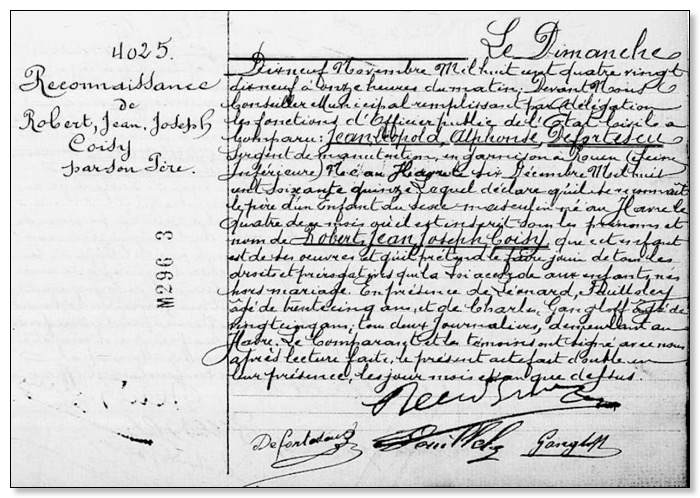 4025.
Reconnaissance
de
Robert, Jean, Joseph
Coisy
par son Père.
M296 3
Le Dimanche
Dix neuf Novembre Mil huit cent quatre vingt
dix neuf à onze heures du matin, Devant Nous
Conseiller Municipal remplissant par délégation
les fonctions d'Officier public de l'Etat Civil, a
comparu: Jean Léopold, Alphonse, Defortescu
Sergent de manutention, en garnison à Rouen (Seine
Inférieure) Né au Havre le six Décembre Mil huit
cent soixante quinze Lequel déclare qu'il se reconnaît
le père d'un Enfant du sexe masculin né au Havre le
quatre de ce mois qu'il est inscrit sous les prénoms et
nom de Robert, Jean, Joseph Coisy, que cet enfant
est de ses oeuvres et qu'il prétend le faire jouir de tous les
droits et prérogatives que la Loi accorde aux enfants nés
hors mariage. En présence de Léonard,
âgé de trente cinq ans, et de Charles, Gangloff âgé de
vingt cinq ans, tous deux Journaliers, demeurant au
Havre. Le Comparant et les témoins ont signé avec nous
après lecture faite, le présent acte fait double en
leur présence, les jour mois et an que dessus.
Defortescu Gangloff